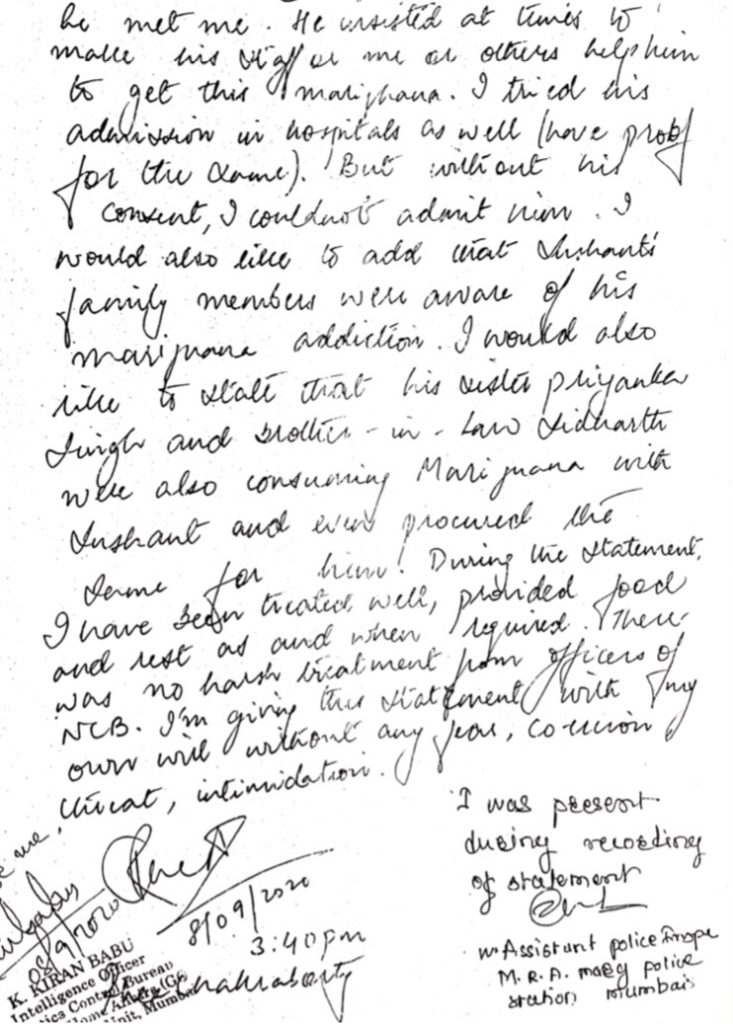 he met me. He insisted at times to
make his staff or me or others help him
to get this marijuana. I tried his
admission in hospitals as well (have proof
for the same). But without his
consent, I couldnot admit him. I
would also like to add that Sushants'
family members were aware of his
marijuana addiction. I would also
like to state that his sister Priyanka
Singh and brother-in-law Siddharth
were also consuming Marijuana with
Sushant and even procured the
same for him. During the statement,
I have been treated well, provided food
and rest as and when required. There
was no harsh treatment from officers of
NCB. I'm giving this statement with my
own will without any fear, co-ercion,
threat, intimidation.
8/09/2020
3:40pm
Chakraborty
me
08/9/2020
K. KIRAN BABU
Intelligence Officer
Control Bureau
Unit, Mumbai
I was present
during recording
of statement
W. Assistant police
M.R.A. marg police
station Mumbai